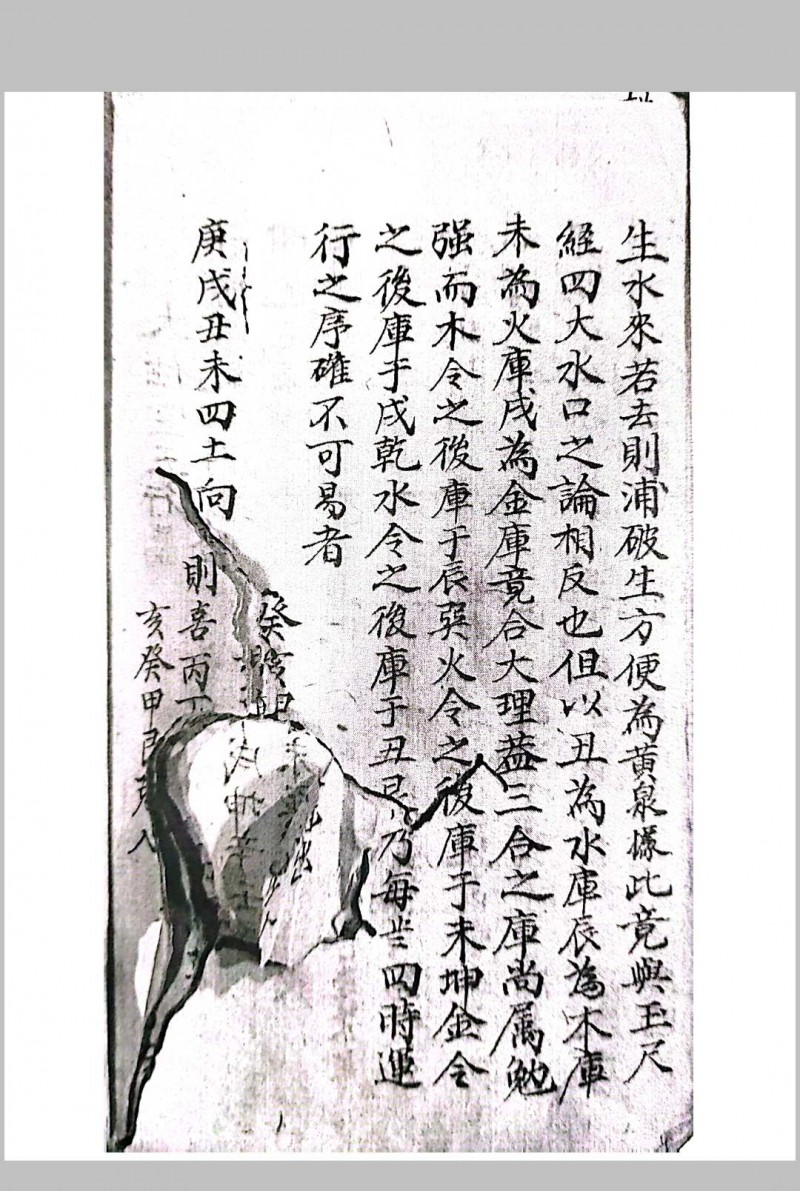 生水來若去則浦破生方便為黃泉㨾此竟與玉尺
經四大水口之論相反也但以丑為水庫辰為木庫
未為火庫戌為金庫竟合大理蓋三合之庫尚属勉
强而木令之後庫于辰巽火令之後庫于未坤金令
之後庫于戌乾水令之後庫于丑艮乃每岁四時運
行之序確不可易者
庚戌丑未四土向
則喜丙丁
亥癸甲